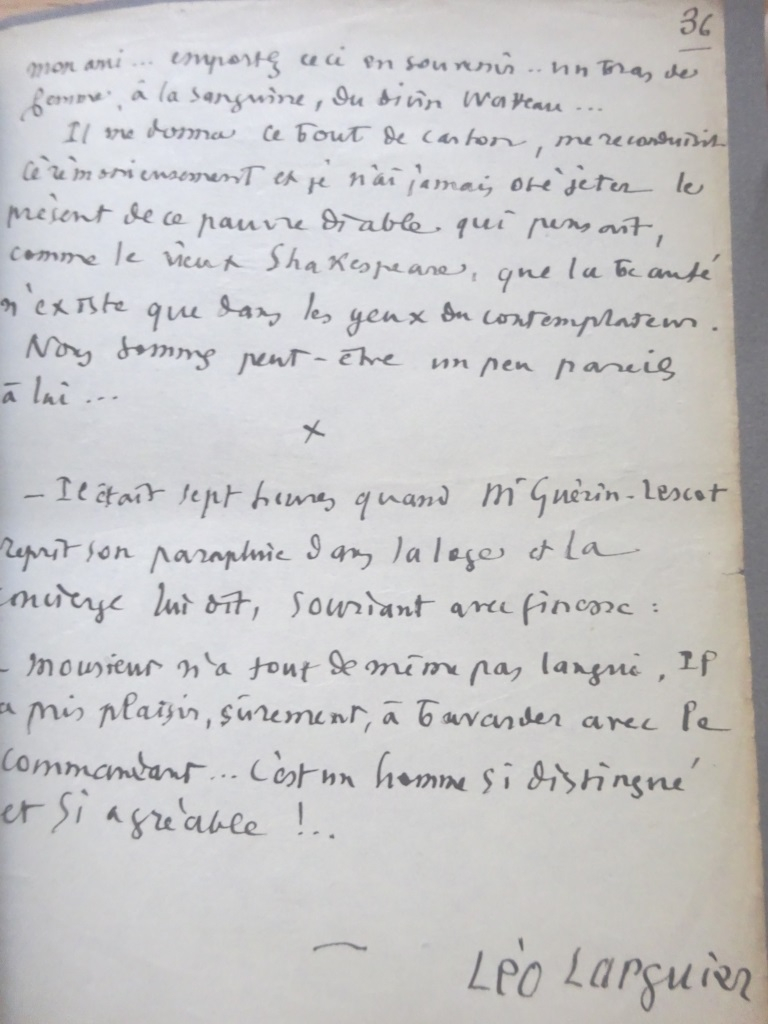 36
mon ami... emportez ceci en souvenir.. un bras de
femme, à la sanguine, du divin Watteau...
Il me donna ce bout de carton, me reconduisit
cérémonieusement et je n'ai jamais osé jeter le
présent de ce pauvre diable qui pensait,
comme le vieux Shakespeare, que la beauté
n'existe que dans les yeux du contemplateur.
Nous sommes peut-être un peu pareils
à lui...
x
- Il était sept heures quand Mr Guérin-Lescot
reprit son parapluie dans la loge et la
concierge lui dit, souriant avec finesse :
- Monsieur n'a tout de même pas langui, Il
a pris plaisir, sûrement, à bavarder avec le
commandant... C'est un homme si distingué
et si agréable !..
Léo Larguier